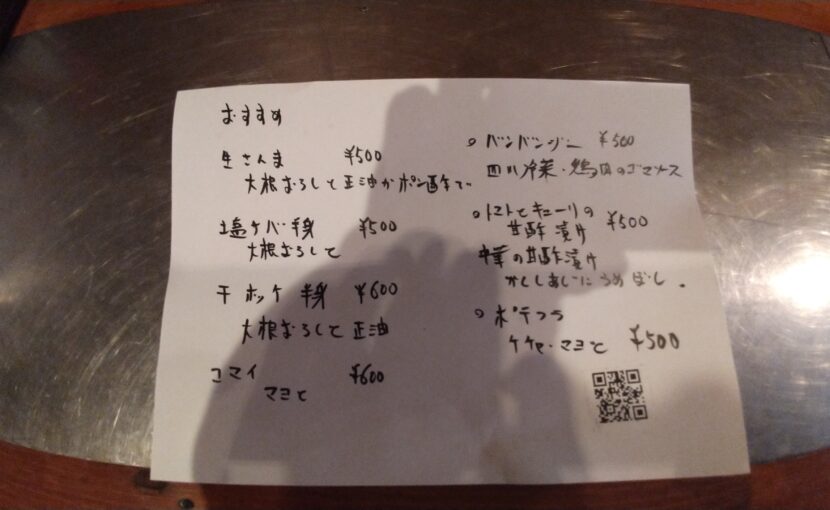 おすすめ
生さんま ¥500
大根おろしと正油かポン酢で
塩サバ半身 ¥500
大根おろしで
干ホッケ 半身 ¥600
大根おろしと正油
コマイ ¥600
マヨと
○バンバンジー ¥500
四川冷菜・鶏肉のゴマソース
○トマトとキューリの
甘酢漬け ¥500
中華の甘酢漬け
かくしあじにうめぼし。
○ポテフラ
ケチャ・マヨと ¥500